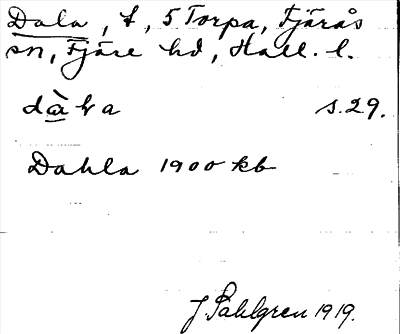 Dala, t, 5 Torpa, Fjärås
sn, Fjäre hd, Hall. l.
dàla s. 29.
Dahla 1900 kb
J. Sahlgren 1919.